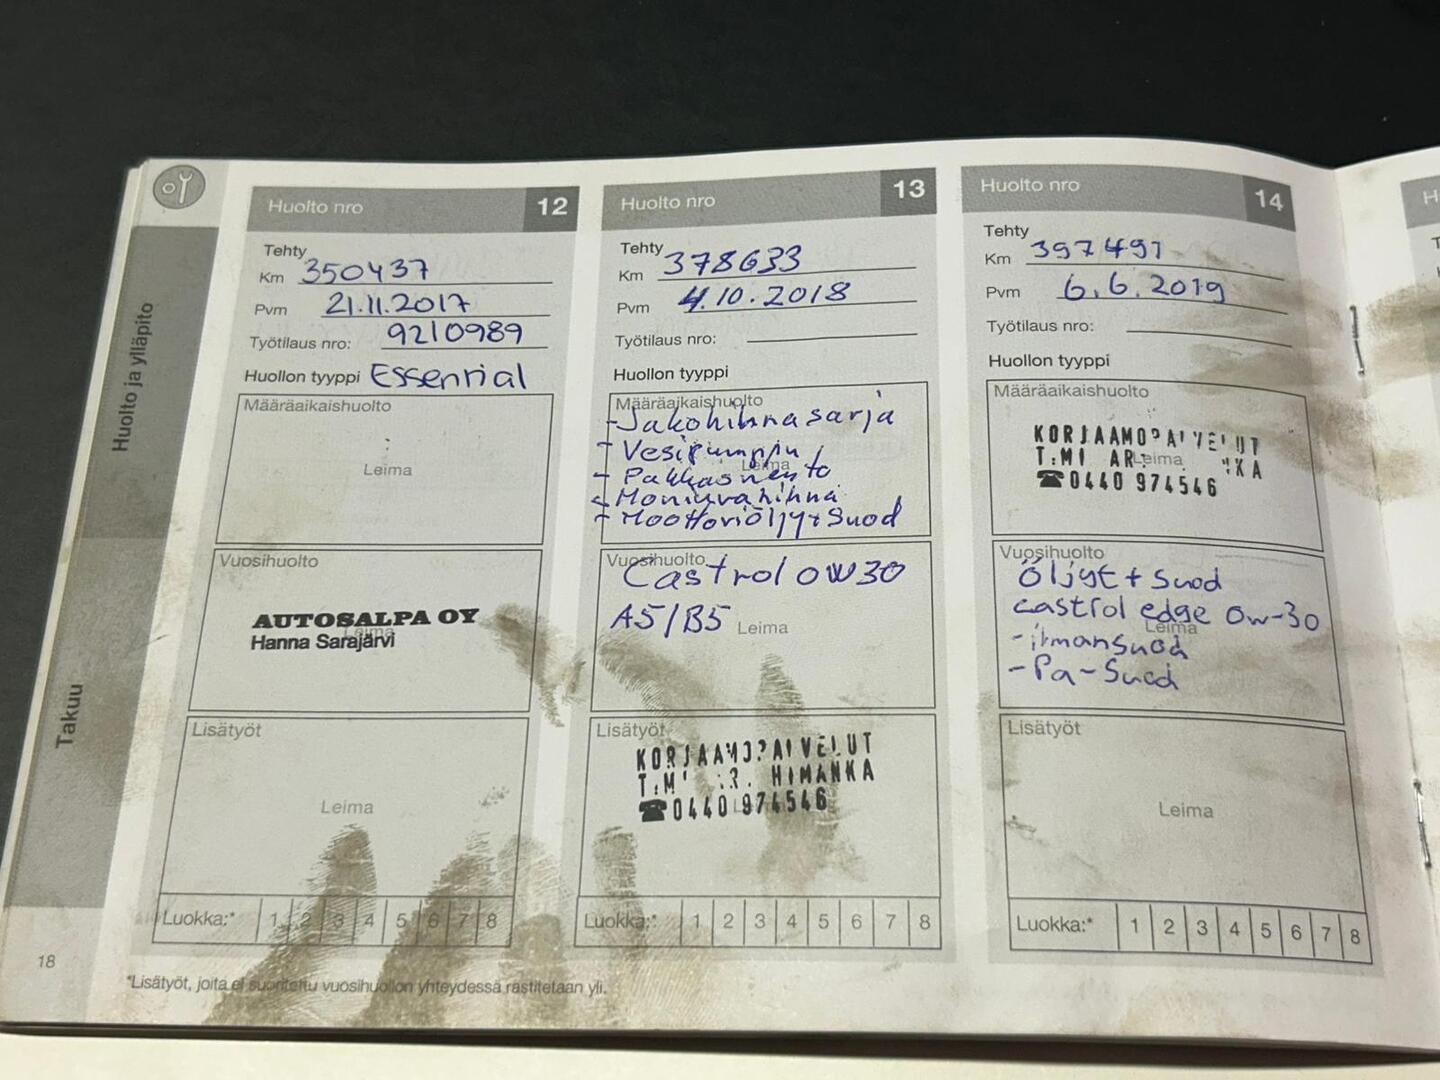 Huolto nro 12
Tehty
Km 350437
Pvm 21.11.2017
Työtilaus nro: 9210989
Huollon tyyppi Essential
Määräaikaishuolto
Leima
Vuosihuolto
AUTOSALPA OY
Leima
Hanna Sarajärvi
Lisätyöt
Leima
Luokka:* 1 2 3 4 5 6 7 8
Huolto nro 13
Tehty
Km 378633
Pvm 4.10.2018
Työtilaus nro:
Huollon tyyppi
Määräaikaishuolto
- Jakohihnasarja
- Vesipumppu
Leima
- Pakkasneste
- Moniurahihna
- Moottoriöljy+Suod
Vuosihuolto
Castrol 0W30
A5/B5
Leima
Lisätyöt
KORJAAMOPALVELUT
T:MI HIMANKA
☎0440 974546
Leima
Luokka:* 1 2 3 4 5 6 7 8
Huolto nro 14
Tehty
Km 397491
Pvm 6.6.2019
Työtilaus nro:
Huollon tyyppi
Määräaikaishuolto
KORJAAMOPALVELUT
T:MI
Leima
☎0440 974546
Vuosihuolto
Öljyt + Suod
castrol edge 0w-30
Leima
- ilmansuod
- Pa-Suod
Lisätyöt
Leima
Luokka:* 1 2 3 4 5 6 7 8
Huolto ja ylläpito
Takuu
18
*Lisätyöt, joita ei suoritettu vuosihuollon yhteydessä rastitetaan yli.